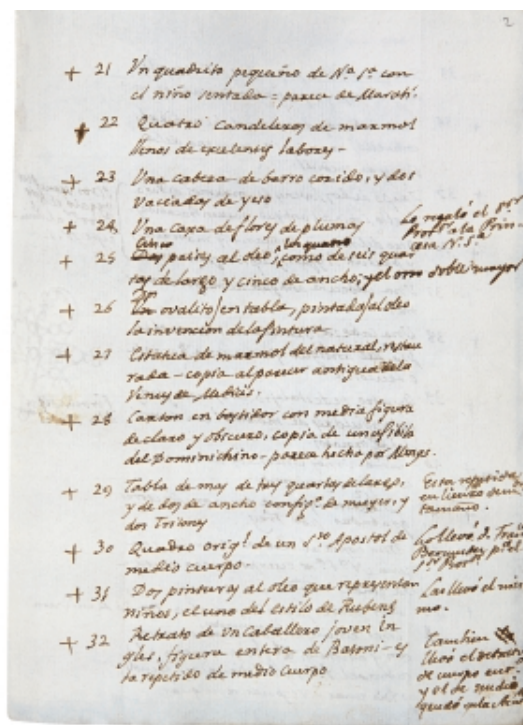 2
+ 21 Un quadrito pequeño de Nª Sª con
el niño sentado = parece de Marati.
+ 22 Quatro Candeleros de marmol
llenos de excelentes labores -
+ 23 Una cabeza de barro cocido, y dos
vaciados de yeso
+ 24 Una caxa de flores de plumas
Lo regaló el Sor
Protr a la Prin-
cesa N. Sª
Cinco un quarto
+ 25 Dos paises al oleo, como de seis quar
tas de largo y cinco de ancho; y el otro doble mayor
+ 26 Un ovalito en tabla, pintada al oleo
la invencion de la Pintura
+ 27 Estatua de marmol del natural, restau
rada - copia al parecer antigua de la
Venus de Medicis.
+ 28 Carton en bastidor con media figura
de claro y obscuro, copia de
del Dominichino - parece hecho por Mengs.
+ 29 Tabla de mas de tres quartas de largo,
y de dos de ancho con figs de muger, y
dos Tritones
Esta repetida
en lienzo de un
tamaño.
+ 30 Quadro origl de un Sto Apostol de
medio cuerpo.
Lo llevó d. Franco
pª el
Sor Protr
+ 31 Dos pinturas al oleo que representan
niños, el uno del estilo de Rubens
Las llevó el mis
mo.
+ 32 Retrato de un Caballero joven In
gles, figura entera de Batoni - y
esta repetido de medio cuerpo
Tambien
llevó el retrato
de cuerpo ente-
y el de medio
quedó en la Acad